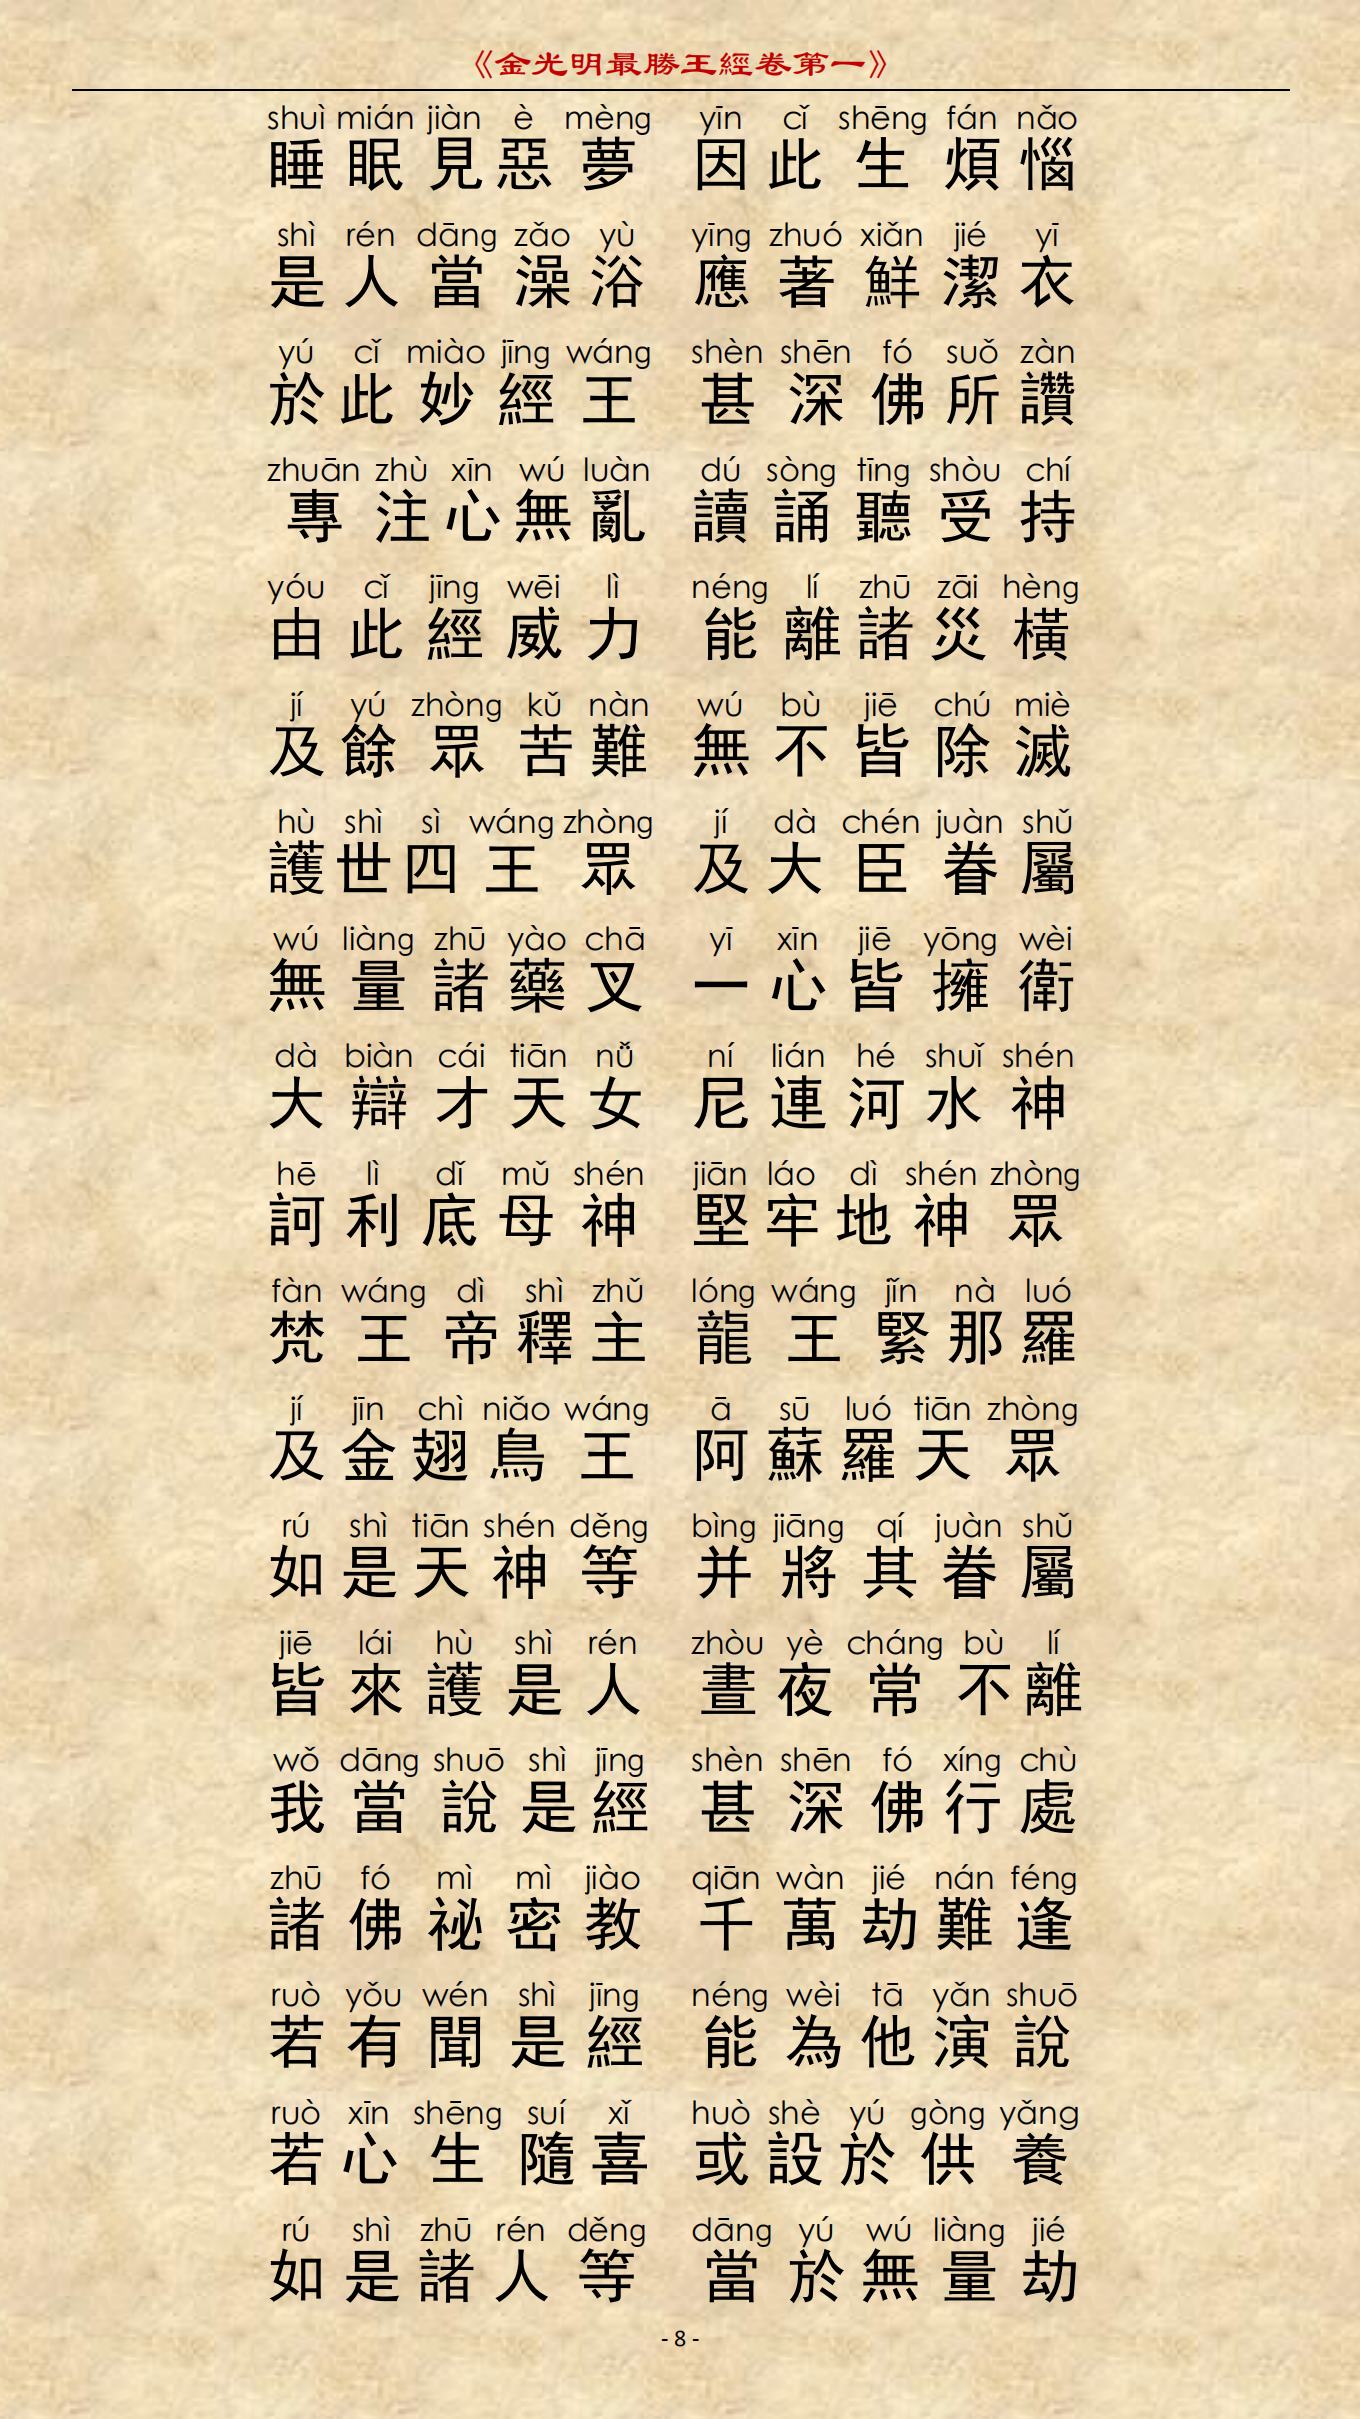 《金光明最勝王經卷第一》
shuì mián jiàn è mèng yīn cǐ shēng fán nǎo
睡眠見惡夢 因此生煩惱
shì rén dāng zǎo yù yīng zhuó xiǎn jié yī
是人當澡浴 應著鮮潔衣
yú cǐ miào jīng wáng shèn shēn fó suǒ zàn
於此妙經王 甚深佛所讚
zhuān zhù xīn wú luàn dú sòng tīng shòu chí
專注心無亂 讀誦聽受持
yóu cǐ jīng wēi lì néng lí zhū zāi hèng
由此經威力 能離諸災橫
jí yú zhòng kǔ nàn wú bù jiē chú miè
及餘眾苦難 無不皆除滅
hù shì sì wáng zhòng jí dà chén juàn shǔ
護世四王眾 及大臣眷屬
wú liàng zhū yào chā yī xīn jiē yōng wèi
無量諸藥叉 一心皆擁衛
dà biàn cái tiān nǚ ní lián hé shuǐ shén
大辯才天女 尼連河水神
hē lì dǐ mǔ shén jiān láo dì shén zhòng
訶利底母神 堅牢地神眾
fàn wáng dì shì zhǔ lóng wáng jǐn nà luó
梵王帝釋主 龍王緊那羅
jí jīn chì niǎo wáng ā sū luó tiān zhòng
及金翅鳥王 阿蘇羅天眾
rú shì tiān shén děng bìng jiāng qí juàn shǔ
如是天神等 并將其眷屬
jiē lái hù shì rén zhòu yè cháng bù lí
皆來護是人 晝夜常不離
wǒ dāng shuō shì jīng shèn shēn fó xíng chù
我當說是經 甚深佛行處
zhū fó mì mì jiào qiān wàn jié nán féng
諸佛祕密教 千萬劫難逢
ruò yǒu wén shì jīng néng wèi tā yǎn shuō
若有聞是經 能為他演說
ruò xīn shēng suí xǐ huò shè yú gòng yǎng
若心生隨喜 或設於供養
rú shì zhū rén děng dāng yú wú liàng jié
如是諸人等 當於無量劫
- 8 -